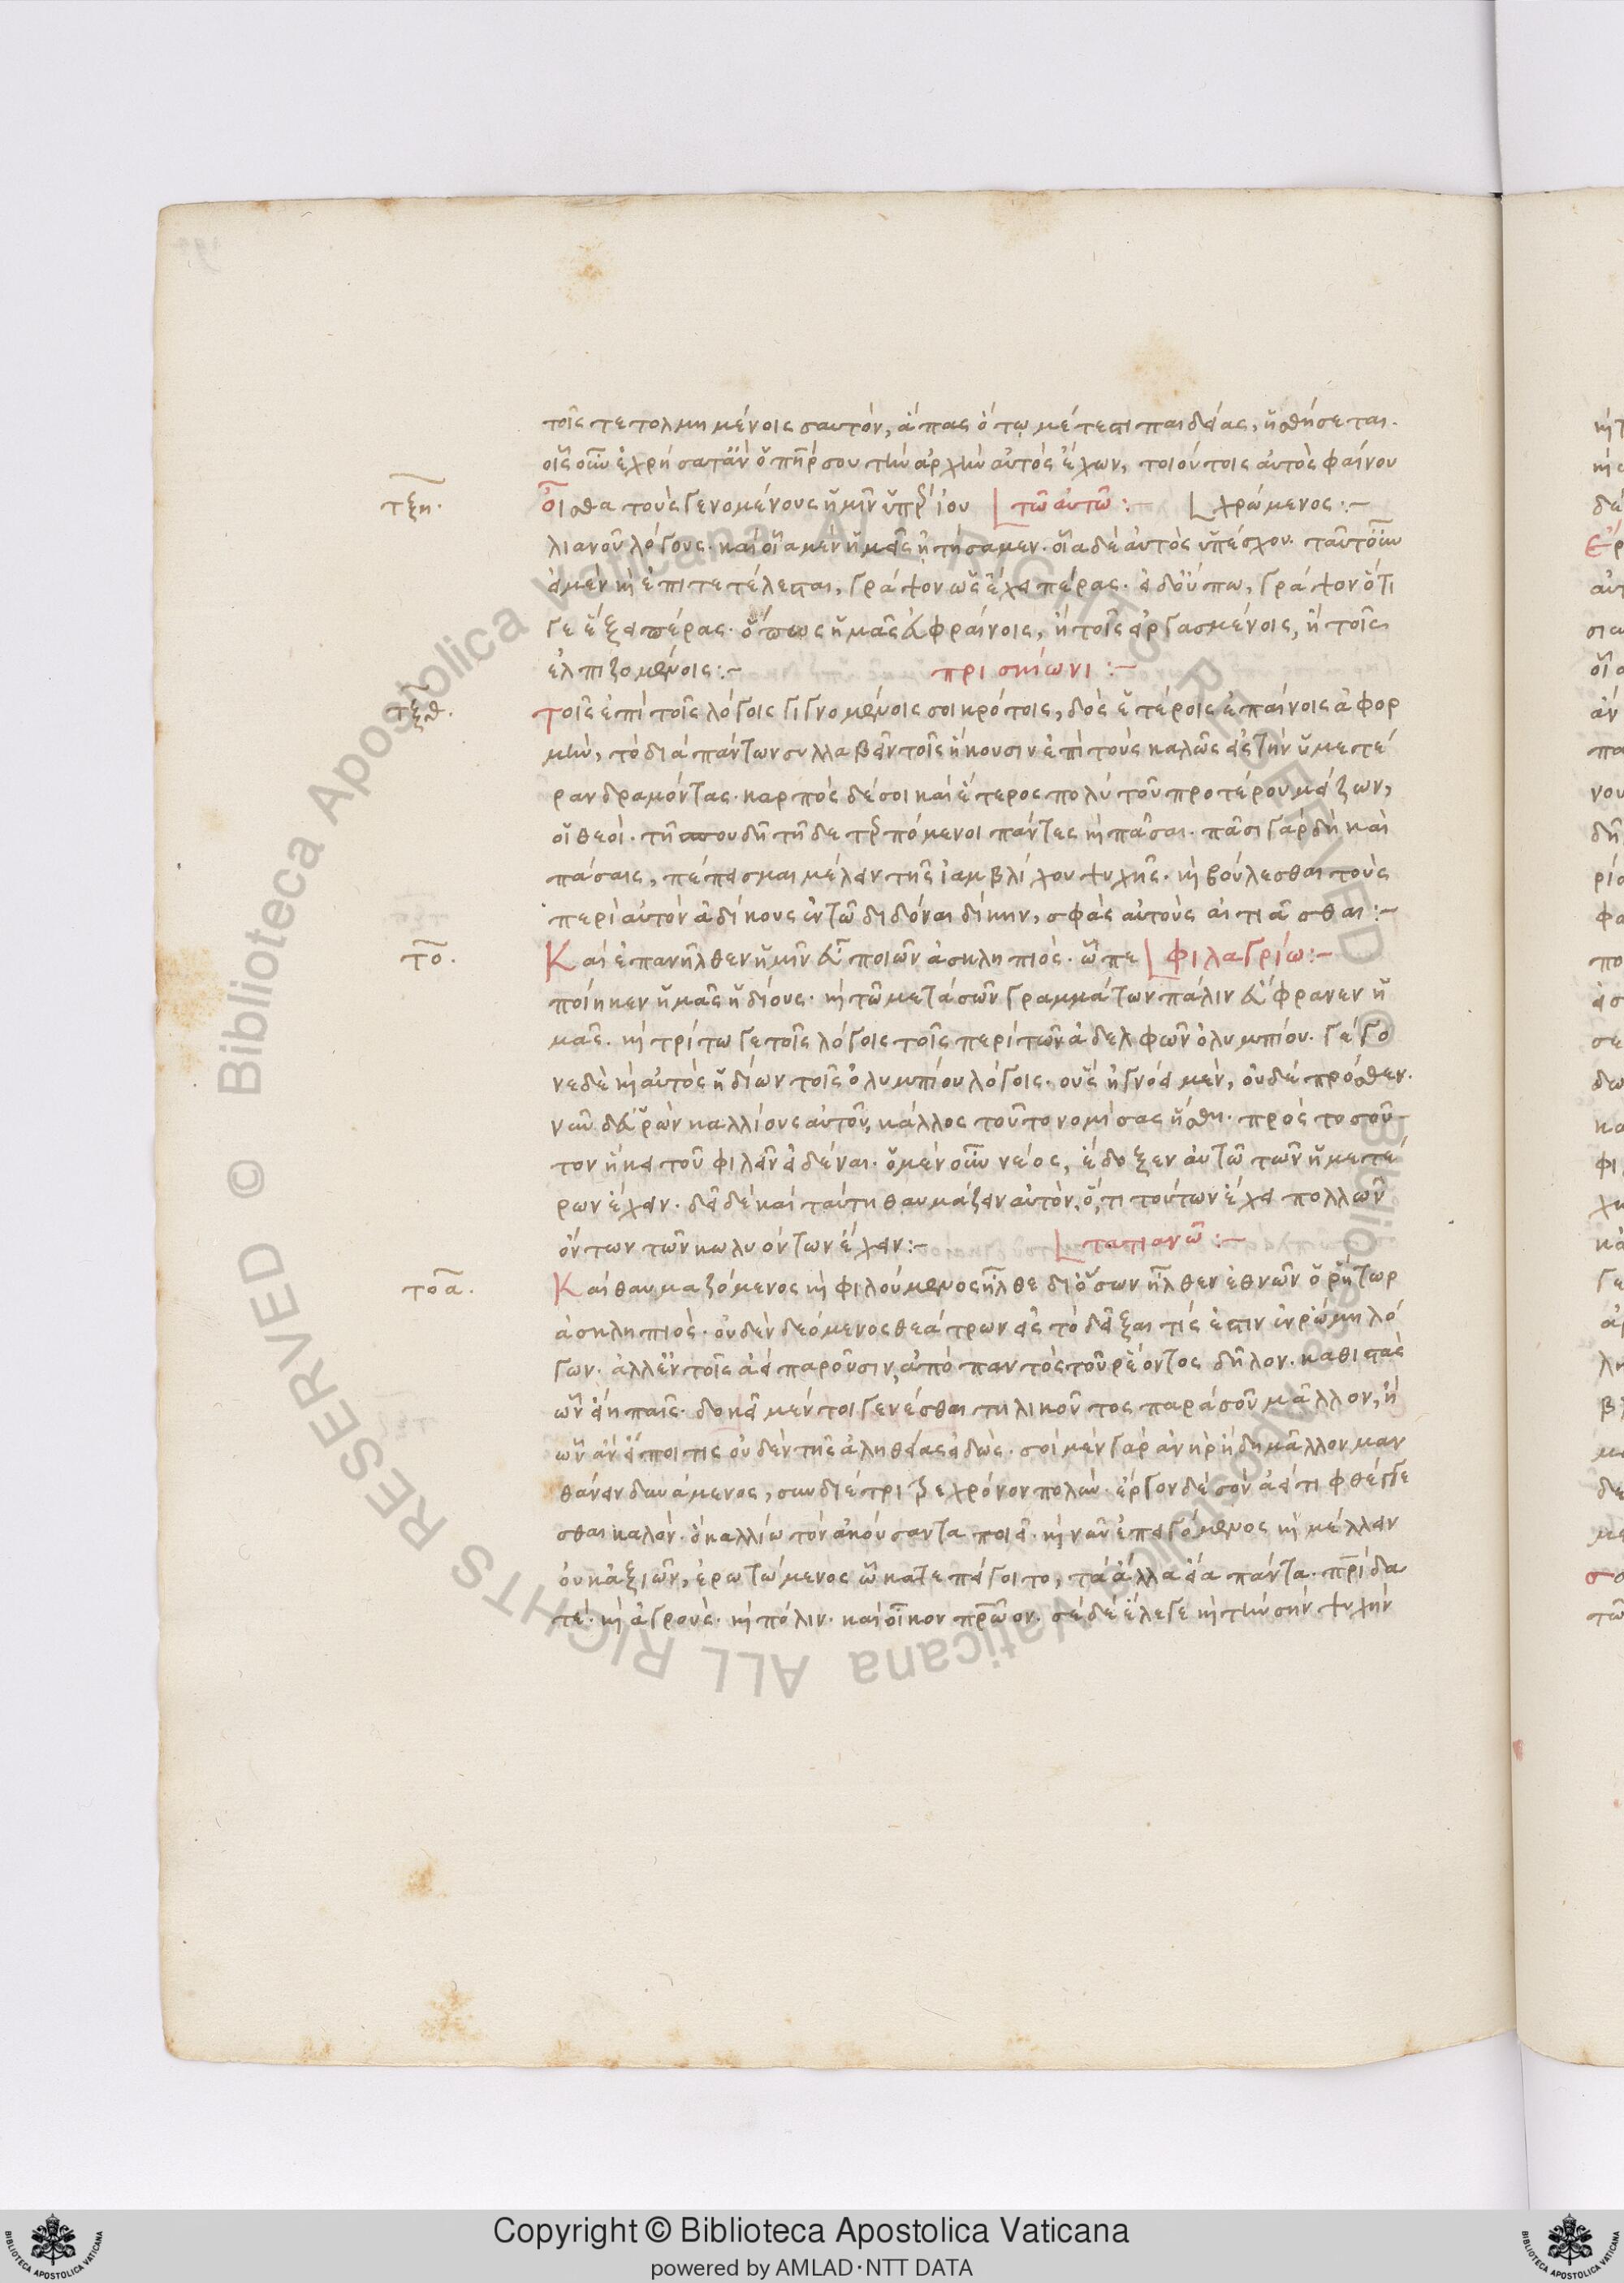 τοῖς τετολμημένοις σαυτόν, ἅπας ὅτῳ μέτεστι παιδείας, ἡσθήσεται.
οἷς οὖν ἐχρήσατ' ἂν ὁ πατήρ σου τὴν ἀρχὴν αὐτὸς ἔχων, τοιούτοις αὐτὸς φαίνου
τξη. οἶσθα τοὺς γενομένους ἡμῖν ὑπὲρ ἰου τῶ αὐτῶ :- χρώμενος :-
λιανοῦ λόγους. καὶ οἷα μὲν ἡμεῖς ᾐτήσαμεν. οἷα δὲ αὐτὸς ὑπέσχου. ταῦτ' οὖν
εἰ μὲν καὶ ἐπιτετέλεσται, γράψον ὡς ἔχει πέρας. εἰ δ' οὔπω, γράψον ὅτι
γε ἕξει πέρας. ὅπως ἡμᾶς εὐφραίνοις, ἢ τοῖς εἰργασμένοις, ἢ τοῖς
ἐλπιζομένοις :- πρισκίωνι :-
τξθ. Τοῖς ἐπὶ τοῖς λόγοις γιγνομένοις σοι κρότοις, δὸς ἑτέροις ἐπαίνοις ἀφορ
μὴν, τὸ διὰ πάντων συλλαβεῖν τοῖς ἥκουσιν ἐπὶ τοὺς καλῶς εἰς τὴν ὑμετέ
ραν δραμόντας. καρπὸς δέ σοι καὶ ἕτερος πολὺ τοῦ προτέρου μείζων,
οἱ θεοὶ. τῇ σπουδῇ τῇδε τερπόμενοι πάντες καὶ πᾶσαι. πᾶσι γὰρ δὴ καὶ
πάσαις, πέπεισμαι μέλειν τῆς ἰαμβλίχου ψυχῆς. καὶ βούλεσθαι τοὺς
περὶ αὐτὸν ἀδίκους ἐν τῶ διδόναι δίκην, σφᾶς αὐτοὺς αἰτιᾶσθαι :-
το. Καὶ ἐπανῆλθεν ἡμῖν εὖ ποιῶν ἀσκληπιός. ᾧ πε φιλαγρίω :-
ποίηκεν ἡμᾶς ἡδίους. καὶ τῶ μετὰ σῶν γραμμάτων πάλιν εὔφρανεν ἡ
μᾶς. καὶ τρίτω γε τοῖς λόγοις τοῖς περὶ τῶν ἀδελφῶν ὀλυμπίου. γέγο
νε δὲ καὶ αὐτὸς ἡδίων τοῖς ὀλυμπίου λόγοις. οὓς ἠγνόει μὲν, οὐδὲ πρόσθεν.
νῦν δ' εὑρὼν καλλίους αὐτοῦ, κάλλος τοῦτο νομίσας ἥσθη. πρὸς τοσοῦ
τον ἥκει τοῦ φιλεῖν εἰδέναι. ὁ μὲν οὖν νέος, ἔδοξεν αὐτῶ τῶν ἡμετέ
ρων ἔχειν. δεῖ δὲ καὶ ταύτη θαυμάζειν αὐτὸν, ὅτι τούτων ἔχει πολλῶν
ὄντων τῶν κωλυόντων ἔχειν :- τατιανῶ :-
τοα. Καὶ θαυμαζόμενος καὶ φιλούμενος ἦλθε δι' ὅσων ἦλθεν ἐθνῶν ὁ ῥήτωρ
ἀσκληπιός. οὐδὲν δεόμενος θεάτρων εἰς τὸ δεῖξαι τίς ἐστιν ἐν ῥώμη λό
γων. ἀλλ' ἦν τοῖς ἀεὶ παροῦσιν, ἀπὸ παντὸς τοῦ ῥέοντος δῆλον. καθιστὰς
ὧν εἴη παῖς. δοκεῖ μέντοι γενέσθαι τηλικοῦτος παρὰ σοῦ μᾶλλον, ἢ
ὧν ἂν εἴποι τις οὐδὲν τῆς ἀληθείας εἰδώς. σοὶ μὲν γὰρ ἀνὴρ ἤδη μᾶλλον μαν
θάνειν δυνάμενος, συνδιέτριβε χρόνον πολὺν. ἔργον δὲ σὸν ἀεί τι φθέγγε
σθαι καλὸν. ὃ καλλίω τὸν ἀκούσαντα ποιεῖ. καὶ νῦν ἐπειγόμενος καὶ μέλλειν
οὐκ ἀξιῶν, ἐρωτώμενος ὧν κατεπείγοιτο, τὰ ἄλλα εἴα πάντα. πατρίδα
τε. καὶ ἀγροὺς. καὶ πόλιν. καὶ οἶκον πατρῶον. σὲ δὲ ἔλεγε καὶ τὴν σὴν ψυχὴν
Copyright © Biblioteca Apostolica Vaticana
powered by AMLAD·NTT DATA